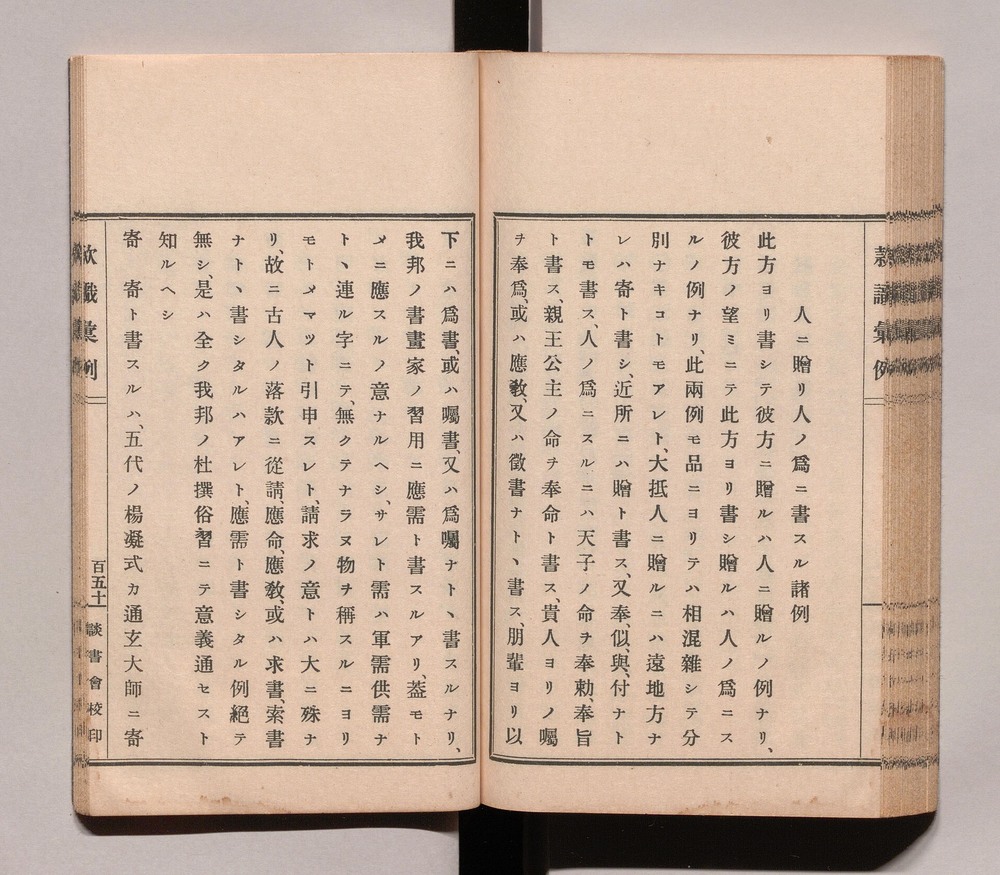 人ニ贈リ人ノ爲ニ書スル諸例
此方ヨリ書シテ彼方ニ贈ルハ人ニ贈ルノ例ナリ、
彼方ノ望ミニテ此方ヨリ書シ贈ルハ人ノ爲ニス
ルノ例ナリ、此兩例モ品ニヨリテハ相混雜シテ分
別ナキコトモアレト、大抵人ニ贈ルニハ遠地方ナ
レハ寄ト書シ、近所ニハ贈ト書ス、又奉、似、與、付ナト
トモ書ス、人ノ爲ニスルニハ天子ノ命ヲ奉勅、奉旨
ト書ス、親王公主ノ命チ奉命ト書ス、貴人ヨリノ囑
チ奉爲、或ハ應敎、又ハ徵書ナト丶書ス、朋輩ヨリ以
下ニハ爲書、或ハ囑書、又ハ爲囑ナト丶書スルナリ、
我邦ノ書畫家ノ習用ニ應需ト書スルアリ、蓋モト
メニ應スルノ意ナルヘシ、サレト需ハ軍需供需ナ
ト丶連ル字ニテ、無クテナラヌ物チ稱スルニヨリ
モトメマツト引申スレト、請求ノ意トハ大ニ殊ナ
リ、故ニ古人ノ落款ニ從請、應命、應敎、或ハ求書、索書
ナト丶書シタルハアレト、應需ト書シタル例絕テ
無シ、是ハ全ク我邦ノ杜撰俗習ニテ意義通セスト
知ルヘシ
寄　寄ト書スルハ、五代ノ楊凝式カ通玄大師ニ寄
款識彙例
百五十
談書會校印